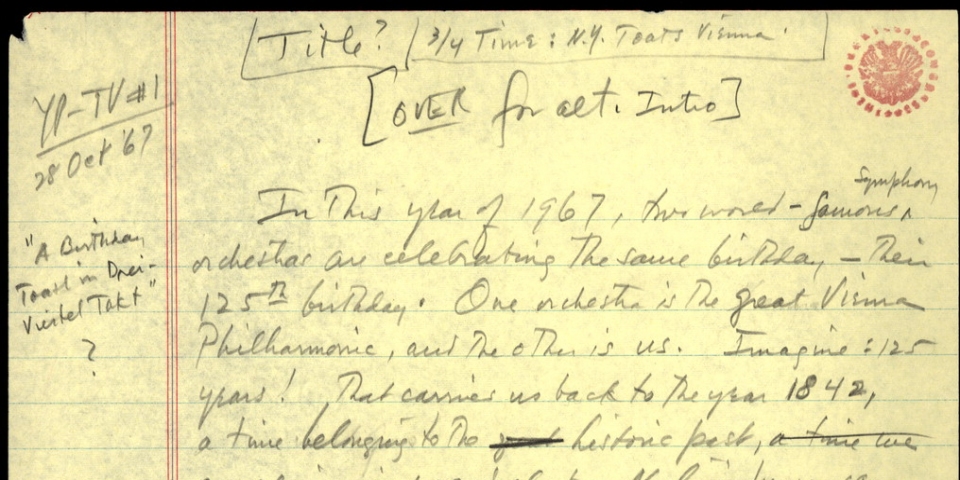 Title? 3/4 Time: N.Y. Toasts Vienna.
[OVER for alt. Intro]
YP-TV #1
28 Oct '67
"A Birthday
Toast in Drei-
Viertel Takt"
?
Symphony
In this year of 1967, two world-famous ^
orchestras are celebrating the same birthday — their
125th birthday. One orchestra is the great Vienna
Philharmonic, and the other is us. Imagine: 125
years! That carries us back to the year 1842,
a time belonging to the historic past, a time we